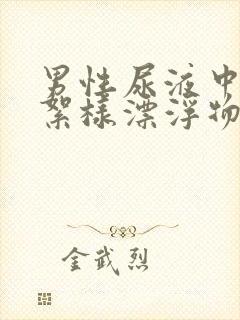 男性尿液中
絮样漂浮物
金武烈